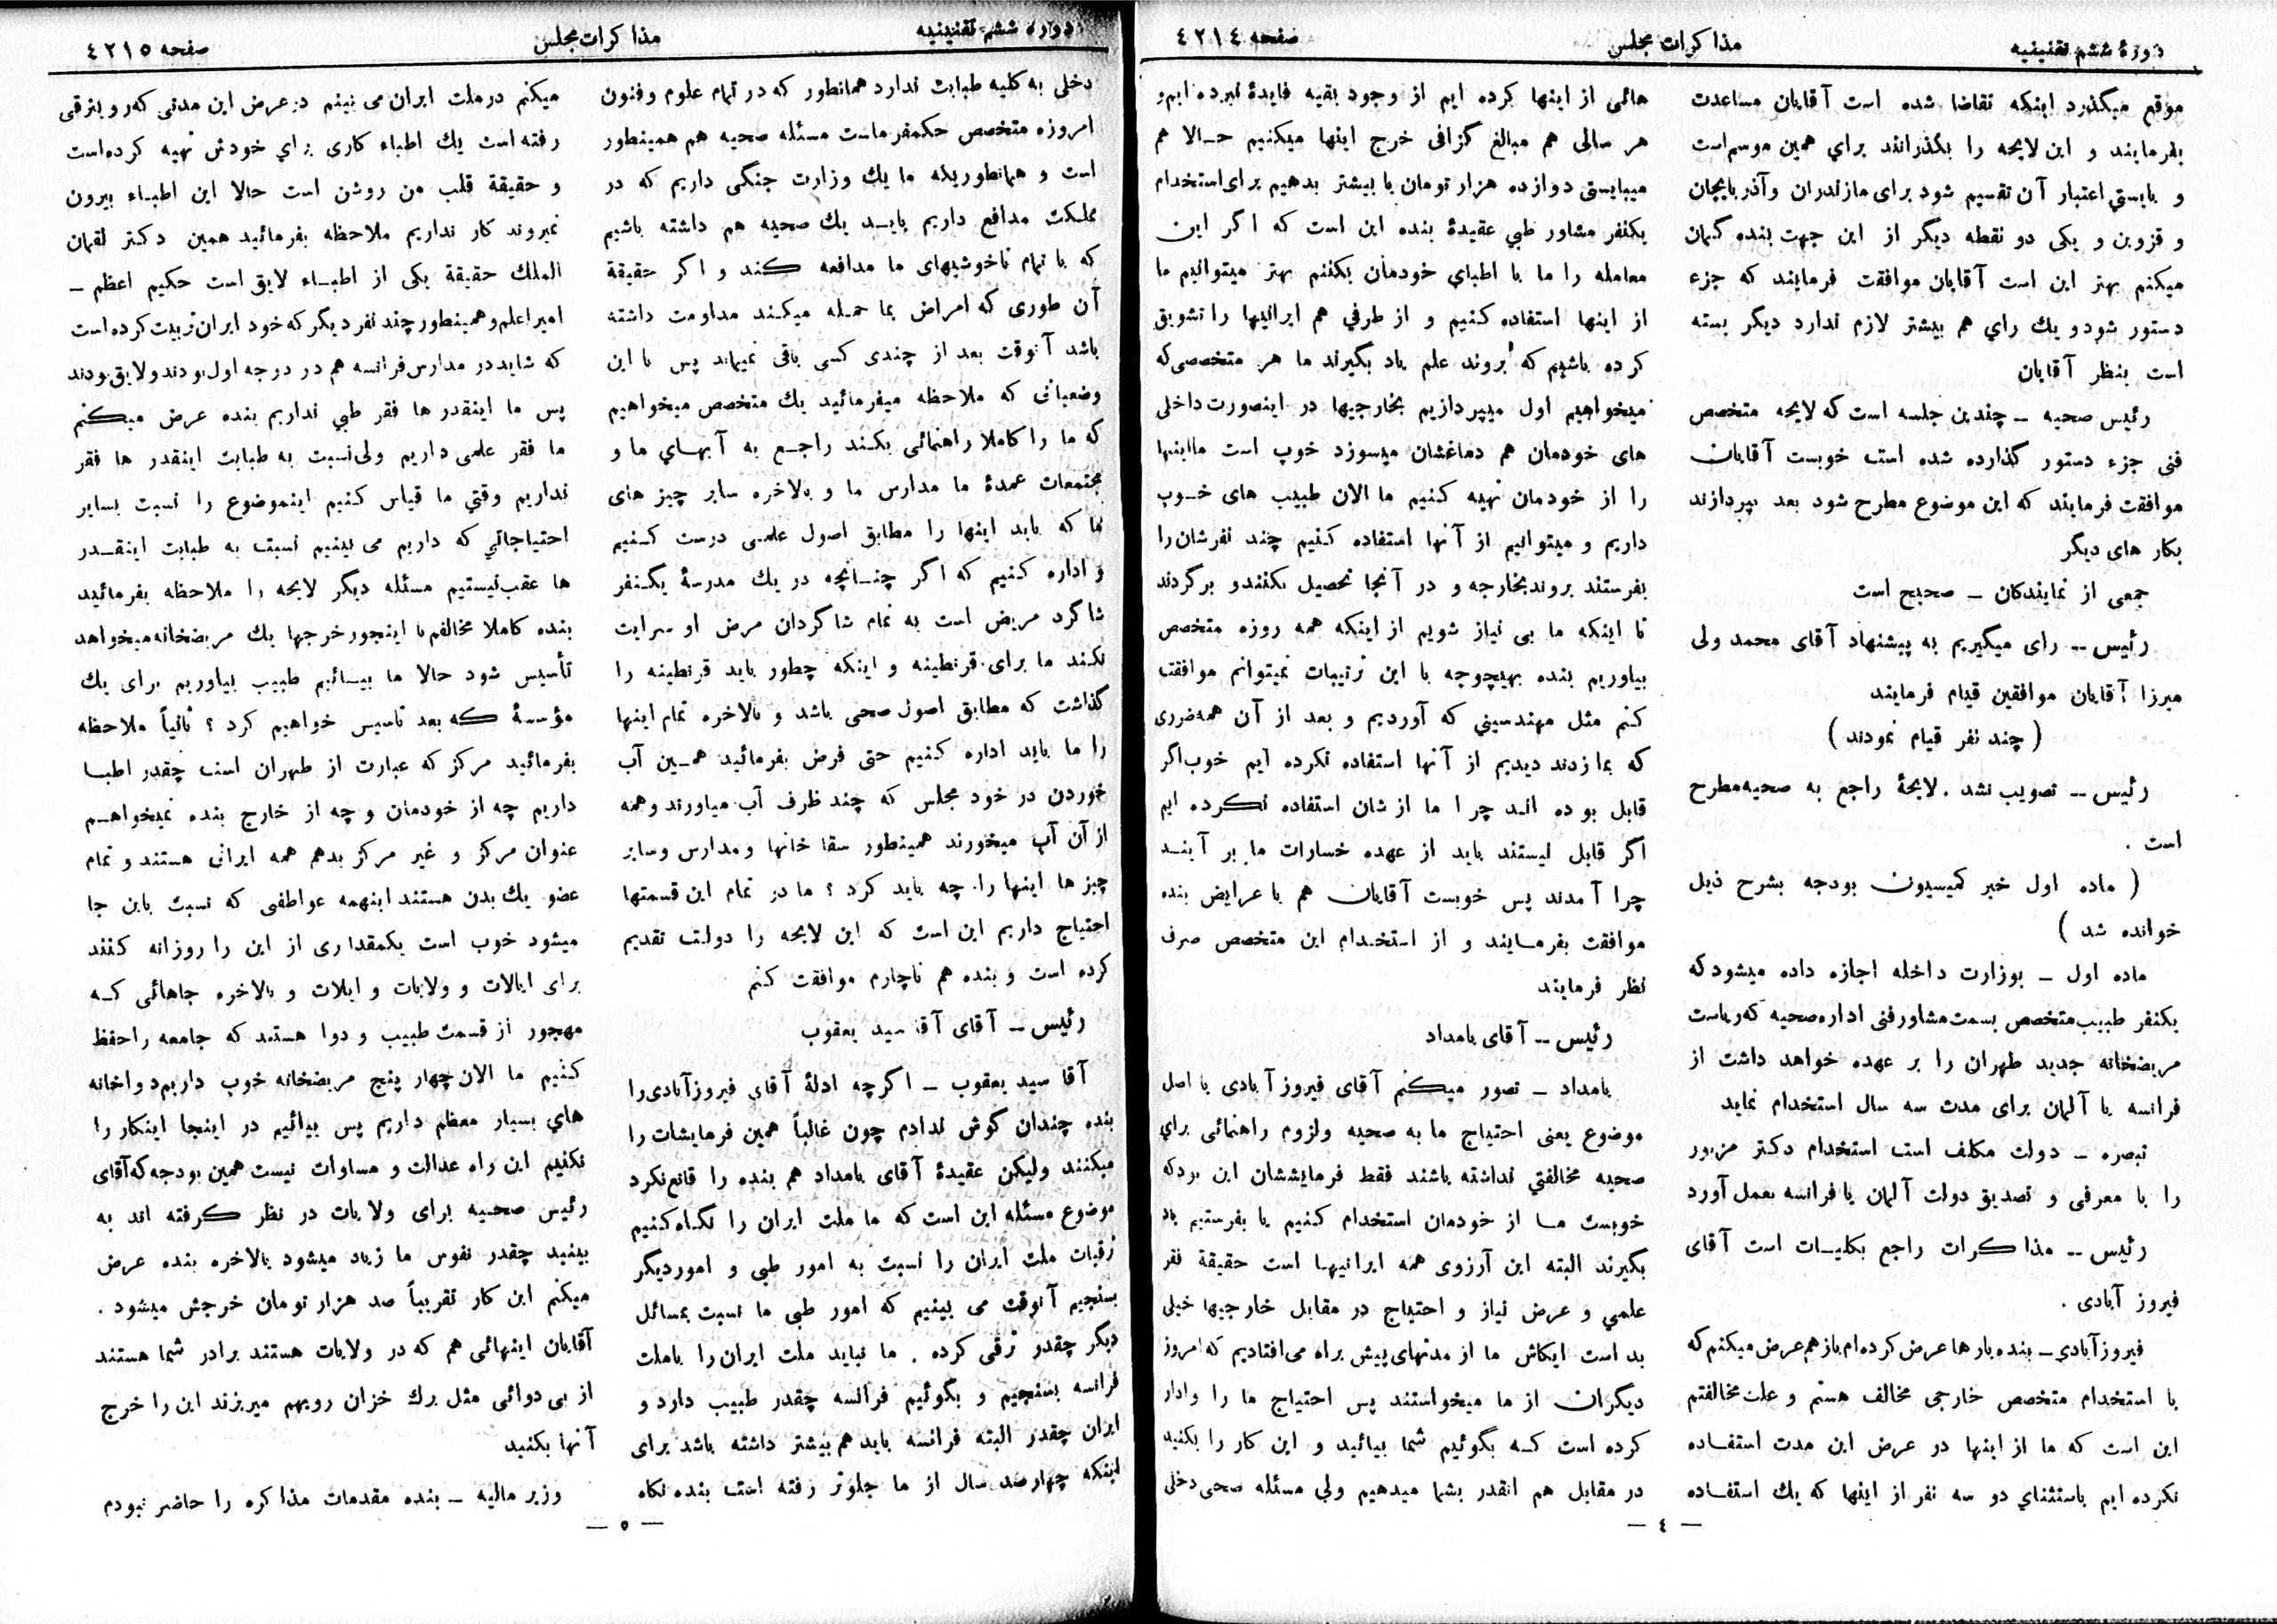 دورهٔ ششم تقنینیه
مذاکرات مجلس
صفحه ٤٢١٤
موقع میگذرد اینکه تقاضا شده است آقایان مساعدت
بفرمایند و این لایحه را بگذرانند برای همین موسم است
و بایستی اعتبار آن تقسیم شود برای مازندران و آذربایجان
و قزوین و یکی دو نقطه دیگر از این جهت بنده گمان
میکنم بهتر این است آقایان موافقت فرمایند که جزء
دستور شود و یك رای هم بیشتر لازم ندارد دیگر بسته
است بنظر آقایان
رئیس صحیه ــ چندین جلسه است که لایحه متخصص
فنی جزء دستور گذارده شده است خوبست آقایان
موافقت فرمایند که این موضوع مطرح شود بعد بپردازند
بکار های دیگر
جمعی از نمایندگان ــ صحیح است
رئیس ــ رای میگیریم به پیشنهاد آقای محمد ولی
میرزا آقایان موافقین قیام فرمایند
( چند نفر قیام نمودند )
رئیس ــ تصویب نشد . لایحهٔ راجع به صحیه مطرح
است .
( ماده اول خبر کمیسیون بودجه بشرح ذیل
خوانده شد )
ماده اول ــ بوزارت داخله اجازه داده میشود که
یکنفر طبیب متخصص بسمت مشاور فنی اداره صحیه که ریاست
مریضخانه جدید طهران را بر عهده خواهد داشت از
فرانسه یا آلمان برای مدت سه سال استخدام نماید
تبصره ــ دولت مکلف است استخدام دکتر مزبور
را با معرفی و تصدیق دولت آلمان یا فرانسه بعمل آورد
رئیس ــ مذاکرات راجع بکلیات است آقای
فیروز آبادی .
فیروزآبادی ــ بنده بارها عرض کرده ام باز هم عرض میکنم که
با استخدام متخصص خارجی مخالف هستم و علت مخالفتم
این است که ما از اینها در عرض این مدت استفاده
نکرده ایم باستثنای دو سه نفر از اینها که یك استفاده
هائی از اینها کرده ایم از وجود بقیه فایدهٔ نبرده ایم و
هر سالی هم مبالغ گزافی خرج اینها میکنیم حالا هم
میبایستی دوازده هزار تومان یا بیشتر بدهیم برای استخدام
یکنفر مشاور طبی عقیدهٔ بنده این است که اگر این
معامله را ما با اطبای خودمان بکنیم بهتر میتوانیم ما
از اینها استفاده کنیم و از طرفی هم ایرانیها را تشویق
کرده باشیم که بروند علم یاد بگیرند ما هر متخصصی که
میخواهیم اول میپردازیم بخارجیها در اینصورت داخلی
های خودمان هم دماغشان میسوزد خوب است ما اینها
را از خودمان تهیه کنیم ما الان طبیب های خوب
داریم و میتوانیم از آنها استفاده کنیم چند نفرشان را
بفرستند بروند بخارجه و در آنجا تحصیل بکنند و برگردند
تا اینکه ما بی نیاز شویم از اینکه همه روزه متخصص
بیاوریم بنده بهیچوجه با این ترتیبات نمیتوانم موافقت
کنم مثل مهندسینی که آوردیم و بعد از آن همه ضرری
که بما زدند دیدیم از آنها استفاده نکرده ایم خوب اگر
قابل بوده اند چرا ما از شان استفاده نکرده ایم
اگر قابل نیستند باید از عهده خسارات ما بر آیند
چرا آمدند پس خوبست آقایان هم با عرایض بنده
موافقت بفرمایند و از استخدام این متخصص صرف
نظر فرمایند
رئیس ــ آقای یامداد
یامداد ــ تصور میکنم آقای فیروز آبادی با اصل
موضوع یعنی احتیاج ما به صحیه و لزوم راهنمائی برای
صحیه مخالفتی نداشته باشند فقط فرمایششان این بود که
خوبست ما از خودمان استخدام کنیم یا بفرستیم یاد
بگیرند البته این آرزوی همه ایرانیها است حقیقة فقر
علمی و عرض نیاز و احتیاج در مقابل خارجیها خیلی
بد است ایکاش ما از مدتهای پیش براه می افتادیم که امروز
دیگران از ما میخواستند پس احتیاج ما را وادار
کرده است که بگوئیم شما بیائید و این کار را بکنید
در مقابل هم انقدر بشما میدهیم ولی مسئله صحی دخلی
— ٤ —
دوره ششم تقنینیه
مذاکرات مجلس
صفحه ٤٢١٥
دخلی به کلیه طبابت ندارد همانطور که در تمام علوم و فنون
امروزه متخصص حکمفرماست مسئله صحیه هم همینطور
است و همانطوریکه ما یك وزارت جنگی داریم که در
مملکت مدافع داریم باید یك صحیه هم داشته باشیم
که با تمام ناخوشیهای ما مدافعه کند و اگر حقیقة
آن طوری که امراض بما حمله میکند مداومت داشته
باشد آنوقت بعد از چندی کسی باقی نمیماند پس با این
وضعیاتی که ملاحظه میفرمائید یك متخصص میخواهیم
که ما را کاملا راهنمائی بکند راجع به آبهای ما و
مجتمعات عمدهٔ ما مدارس ما و بالاخره سایر چیز های
ما که باید اینها را مطابق اصول علمی درست کنیم
و اداره کنیم که اگر چنانچه در یك مدرسهٔ یکنفر
شاگرد مریض است به تمام شاگردان مرض او سرایت
نکند ما برای قرنطینه و اینکه چطور باید قرنطینه را
گذاشت که مطابق اصول صحی باشد و بالاخره تمام اینها
را ما باید اداره کنیم حتی فرض بفرمائید همین آب
خوردن در خود مجلس که چند ظرف آب میاورند و همه
از آن آب میخورند همینطور سقا خانها و مدارس و سایر
چیز ها اینها را چه باید کرد ؟ ما در تمام این قسمتها
احتیاج داریم این است که این لایحه را دولت تقدیم
کرده است و بنده هم ناچارم موافقت کنم
رئیس ــ آقای آقا سید یعقوب
آقا سید یعقوب ــ اگرچه ادلهٔ آقای فیروزآبادی را
بنده چندان گوش ندادم چون غالباً همین فرمایشات را
میکنند ولیکن عقیدهٔ آقای یامداد هم بنده را قانع نکرد
موضوع مسئله این است که ما ملت ایران را نگاه کنیم
ترقیات ملت ایران را نسبت به امور طبی و امور دیگر
بسنجیم آنوقت می بینیم که امور طبی ما نسبت بمسائل
دیگر چقدر ترقی کرده . ما نباید ملت ایران را با ملت
فرانسه بسنجیم و بگوئیم فرانسه چقدر طبیب دارد و
ایران چقدر البته فرانسه باید هم بیشتر داشته باشد برای
اینکه چهارصد سال از ما جلوتر رفته است بنده نگاه
میکنم در ملت ایران می بینم در عرض این مدتی که رو بترقی
رفته است یك اطباء کاری برای خودش تهیه کرده است
و حقیقة قلب من روشن است حالا این اطباء بیرون
نمیروند کار نداریم ملاحظه بفرمائید همین دکتر لقمان
الملك حقیقة یکی از اطباء لایق است حکیم اعظم ــ
امیر اعلم و همینطور چند نفر دیگر که خود ایران تربیت کرده است
که شاید در مدارس فرانسه هم در درجه اول بودند و لایق بودند
پس ما اینقدر ها فقر طبی نداریم بنده عرض میکنم
ما فقر علمی داریم ولی نسبت به طبابت اینقدر ها فقر
نداریم وقتی ما قیاس کنیم اینموضوع را نسبت بسایر
احتیاجاتی که داریم می بینیم نسبت به طبابت اینقدر
ها عقب نیستیم مسئله دیگر لایحه را ملاحظه بفرمائید
بنده کاملا مخالفم با اینجور خرجها یك مریضخانه میخواهد
تأسیس شود حالا ما بیائیم طبیب بیاوریم برای یك
مؤسسهٔ که بعد تاسیس خواهیم کرد ؟ ثانیاً ملاحظه
بفرمائید مرکز که عبارت از طهران است چقدر اطبا
داریم چه از خودمان و چه از خارج بنده نمیخواهم
عنوان مرکز و غیر مرکز بدهم همه ایرانی هستند و تمام
عضو یك بدن هستند اینهمه عواطفی که نسبت باین جا
میشود خوب است یکمقداری از این را روزانه کنند
برای ایالات و ولایات و ایلات و بالاخره جاهائی که
مهجور از قسمت طبیب و دوا هستند که جامعه را حفظ
کنیم ما الان چهار پنج مریضخانه خوب داریم دواخانه
های بسیار معظم داریم پس بیائیم در اینجا اینکار را
نکنیم این راه عدالت و مساوات نیست همین بودجه که آقای
رئیس صحیه برای ولایات در نظر گرفته اند به
بینید چقدر نفوس ما زیاد میشود بالاخره بنده عرض
میکنم این کار تقریباً صد هزار تومان خرجش میشود .
آقایان اینهائی هم که در ولایات هستند برادر شما هستند
از بی دوائی مثل برك خزان رویهم میریزند این را خرج
آنها بکنید
وزیر مالیه ــ بنده مقدمات مذاکره را حاضر نبودم
— ٥ —